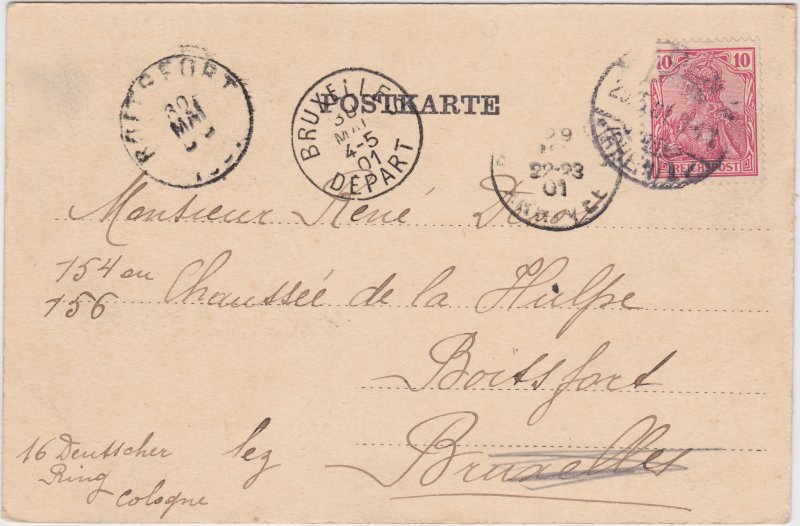 BOITSFORT
30
MAI
BRUXELLES
30
MAI
4-5
01
DEPART
POSTKARTE
29
22-23
01
10
10
REICHSPOST
Monsieur René
154 ou
156
Chaussée de la Hulpe
Boitsfort
16 Deutscher
Ring
Cologne
lez
Bruxelles